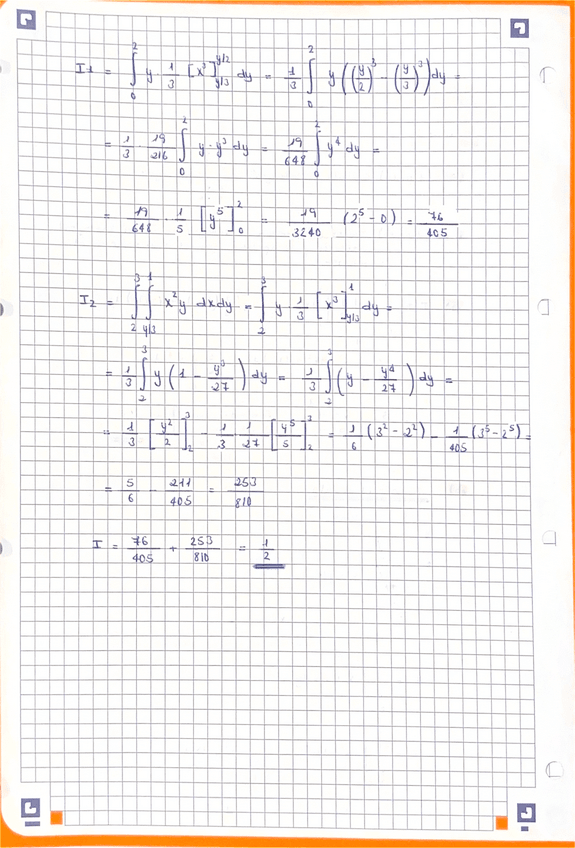 I1 = ∫₀² y · 1/3 [x³]_{y/3}^{y/2} dy = 1/3 ∫₀² y ((y/2)³ − (y/3)³) dy =
= 1/3 · 19/216 ∫₀² y · y³ dy = 19/648 ∫₀² y⁴ dy =
= 19/648 · 1/5 [y⁵]₀² = 19/3240 (2⁵ − 0) = 76/405
I2 = ∫₂³ ∫_{y/3}^1 x²y dxdy = ∫₂³ y · 1/3 [x³]_{y/3}^1 dy =
= 1/3 ∫₂³ y (1 − y³/27) dy = 1/3 ∫₂³ (y − y⁴/27) dy =
= 1/3 [y²/2]₂³ − 1/3 · 1/27 [y⁵/5]₂³ = 1/6 (3² − 2²) − 1/405 (3⁵ − 2⁵) =
= 5/6 − 211/405 = 253/810
I = 76/405 + 253/810 = 1/2